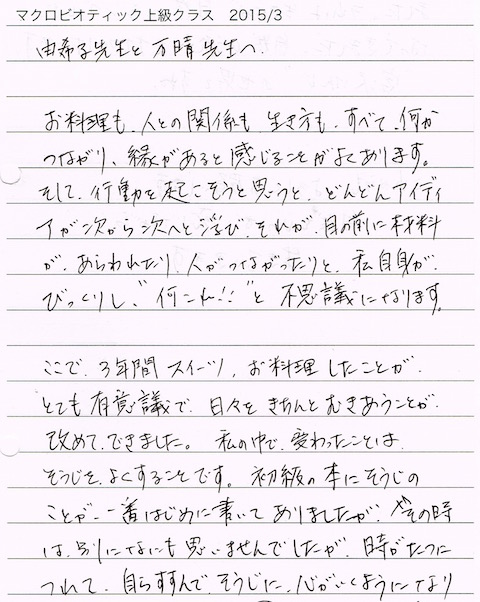 マクロビオティック上級クラス 2015/3
由希子先生と 万晴 先生へ.
お料理も、人との関係も、生き方も、すべて、何か
つながり、縁があると感じることがよくあります。
そして、行動を起こそうと思うと、どんどんアイディ
アが次から次へと浮び、それが、目の前に材料
が、あらわれたり、人がつながったりと、私自身が、
びっくりし、"何これ!!"と 不思議になります。
ここで、3年間 スイーツ、お料理 したことが、
とても 有意議で、日々を きちんと むきあうことが、
改めて、できました。 私の中で、変わったことは、
そうじを、よくすることです。 初級の本にそうじの
ことが、一番はじめに書いて ありましたが、その時
は、別になにも思いませんでしたが、時がたつに
つれて、自らすすんで、そうじに、心がいくようになり